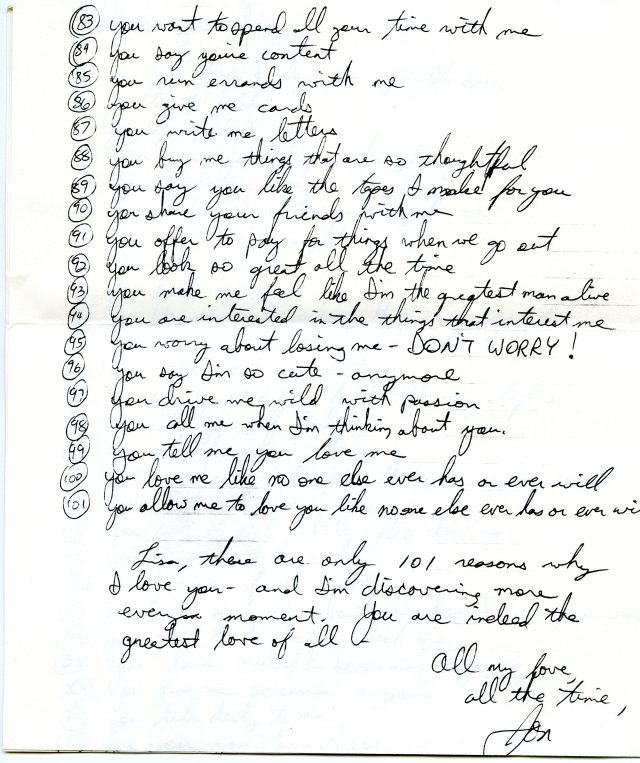 83 you want to spend all your time with me
84 you say you're content
85 you run errands with me
86 you give me cards
87 you write me letters
88 you buy me things that are so thoughtful
89 you say you like the tapes I make for you
90 you share your friends with me
91 you offer to pay for things when we go out
92 you look so great all the time
93 you make me feel like I'm the greatest man alive
94 you are interested in the things that interest me
95 you worry about losing me - DON'T WORRY!
96 you say I'm so cute - anymore
97 you drive me wild with passion
98 you call me when I'm thinking about you.
99 you tell me you love me
100 you love me like no one else ever has or ever will
101 you allow me to love you like no one else ever has or ever wi
Lisa, these are only 101 reasons why
I love you - and I'm discovering more
every moment. You are indeed the
greatest love of all -
All my love,
all the time,